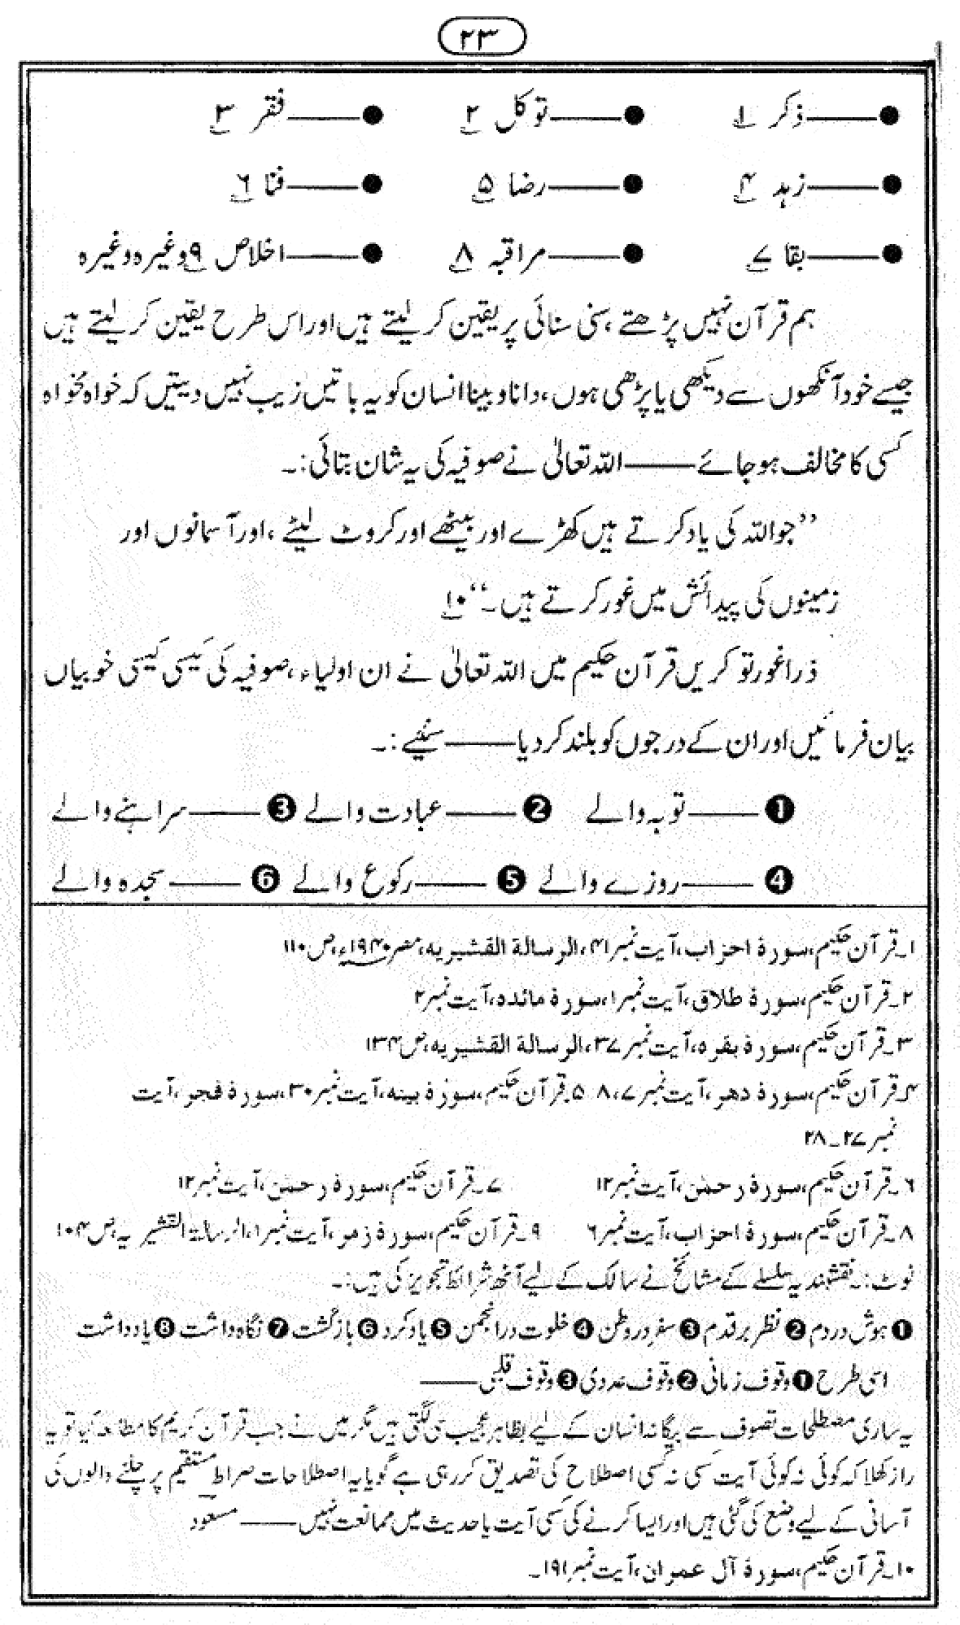 ۲۳
●——ذکر ۱ ●——توکل ۲ ●——فقر ۳
●——زہد ۴ ●——رضا ۵ ●——فنا ۶
●——بقا ۷ ●——مراقبہ ۸ ●——اخلاص ۹ وغیرہ وغیرہ
ہم قرآن نہیں پڑھتے، سنی سنائی پر یقین کر لیتے ہیں اور اس طرح یقین کر لیتے ہیں
جیسے خود آنکھوں سے دیکھی یا پڑھی ہوں، دانا و بینا انسان کو یہ باتیں زیب نہیں دیتیں کہ خواہ مخواہ
کسی کا مخالف ہو جائے——اللہ تعالیٰ نے صوفیہ کی یہ شان بتائی:۔
’’جو اللہ کی یاد کرتے ہیں کھڑے اور بیٹھے اور کروٹ لیٹے، اور آسمانوں اور
زمینوں کی پیدائش میں غور کرتے ہیں۔‘‘۱۰
ذرا غور تو کریں قرآن حکیم میں اللہ تعالیٰ نے ان اولیاء، صوفیہ کی کیسی کیسی خوبیاں
بیان فرمائیں اور ان کے درجوں کو بلند کر دیا——سنیئے:۔
❶——توبہ والے ❷——عبادت والے ❸——سراہنے والے
❹——روزے والے ❺——رکوع والے ❻——سجدہ والے
۱۔ قرآن حکیم، سورۂ احزاب، آیت نمبر ۴۱، الرسالة القشیریه، مصر ۱۹۴۰ء، ص ۱۱۰
۲۔ قرآن حکیم، سورۂ طلاق، آیت نمبر ۱، سورۂ مائدہ، آیت نمبر ۲
۳۔ قرآن حکیم، سورۂ بقرہ، آیت نمبر ۳۷، الرسالة القشیریه، ص ۱۳۴
۴۔ قرآن حکیم، سورۂ دھر، آیت نمبر ۷، ۸ ۵۔ قرآن حکیم، سورۂ بینہ، آیت نمبر ۳۰، سورۂ فجر، آیت
نمبر ۲۷۔۲۸
۶۔ قرآن حکیم، سورۂ رحمٰن، آیت نمبر ۱۲ ۷۔ قرآن حکیم، سورۂ رحمٰن، آیت نمبر ۱۲
۸۔ قرآن حکیم، سورۂ احزاب، آیت نمبر ۶ ۹۔ قرآن حکیم، سورۂ زمر، آیت نمبر ۱، الرسالة القشیریہ، ص ۱۰۴
نوٹ:۔ نقشبندیہ سلسلے کے مشائخ نے سالک کے لیے آٹھ شرائط تجویز کی ہیں:۔
❶ ہوش در دم ❷ نظر بر قدم ❸ سفر در وطن ❹ خلوت در انجمن ❺ یاد کرد ❻ بازگشت ❼ نگاہ داشت ❽ یادداشت
اسی طرح ❶ وقوف زمانی ❷ وقوف عددی ❸ وقوف قلبی——
یہ ساری مصطلحات تصوف سے بیگانہ انسان کے لیے بظاہر عجیب سی لگتی ہیں مگر میں نے جب قرآن کریم کا مطالعہ کیا تو یہ
راز کھلا کہ کوئی نہ کوئی آیت کسی نہ کسی اصطلاح کی تصدیق کر رہی ہے گویا یہ اصطلاحات صراط مستقیم پر چلنے والوں کی
آسانی کے لیے وضع کی گئی ہیں اور ایسا کرنے کی کسی آیت یا حدیث میں ممانعت نہیں——مسعود
۱۰۔ قرآن حکیم، سورۂ آل عمران، آیت نمبر ۱۹۱۔